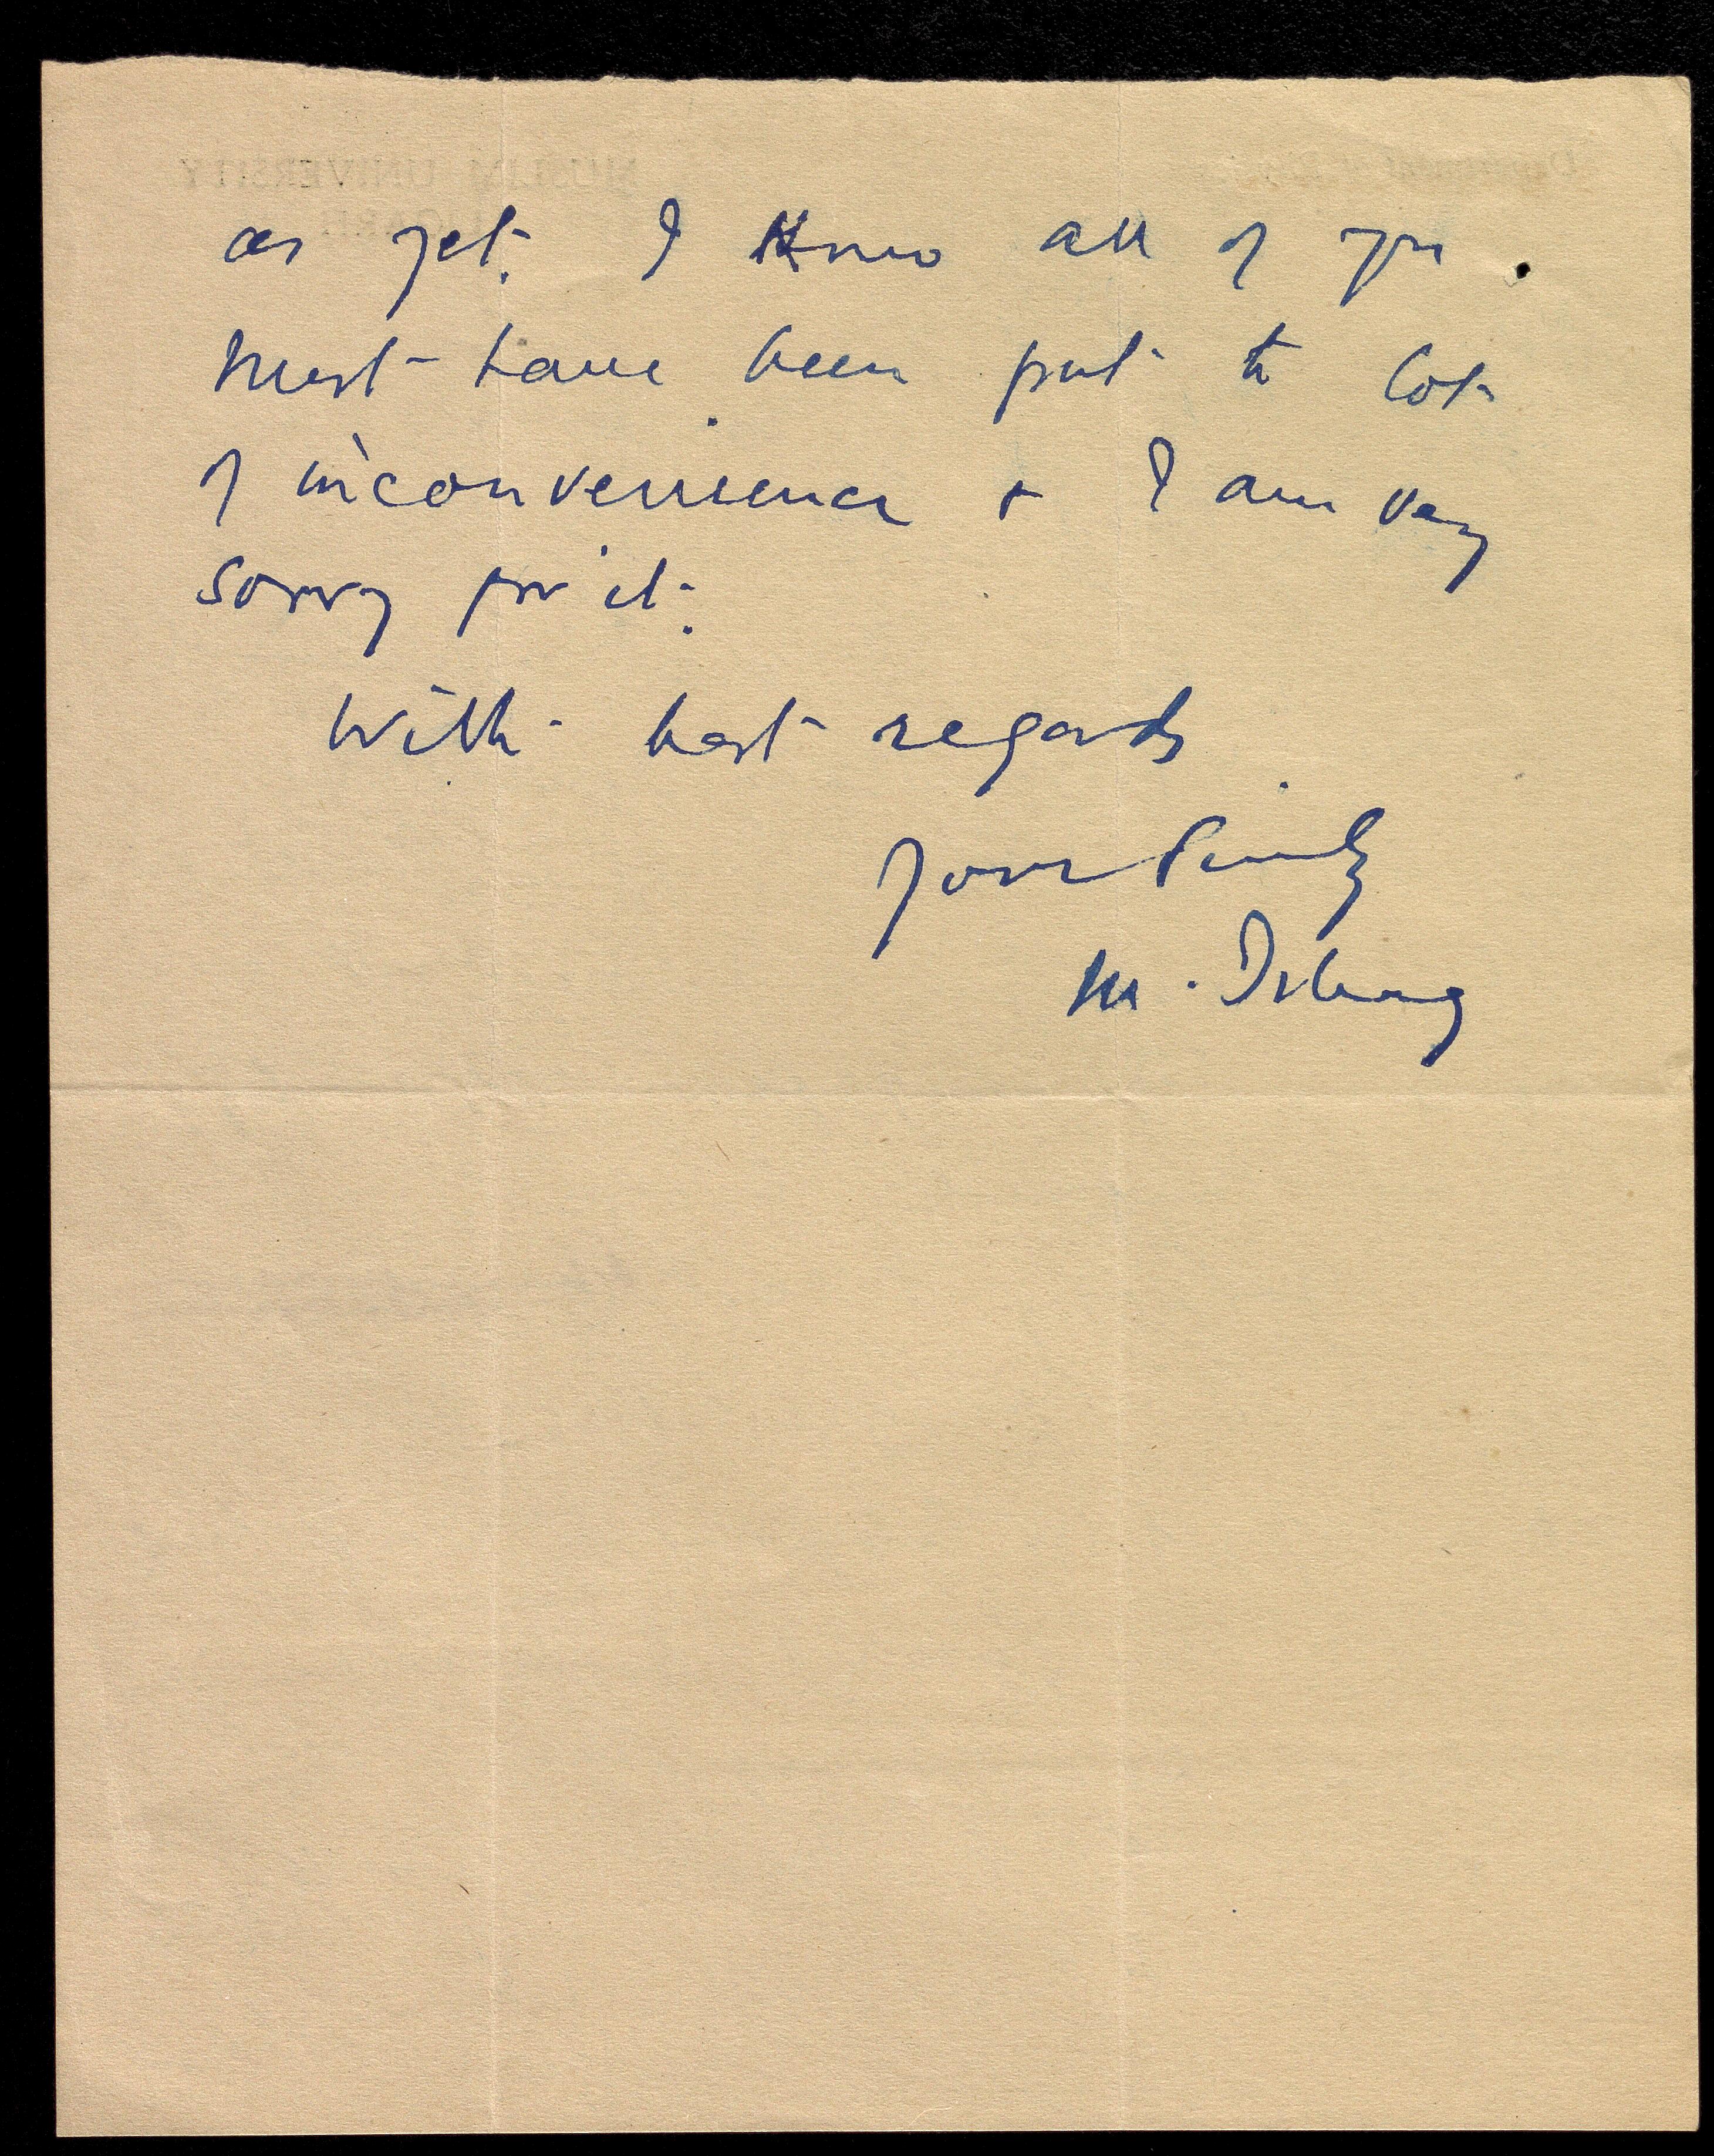 MUSLIM UNIVERSITY
as yet. I know all of you
must have been put to lot
of inconvenience + I am very
sorry for it.
With best regards
Yours Sincerely
M.